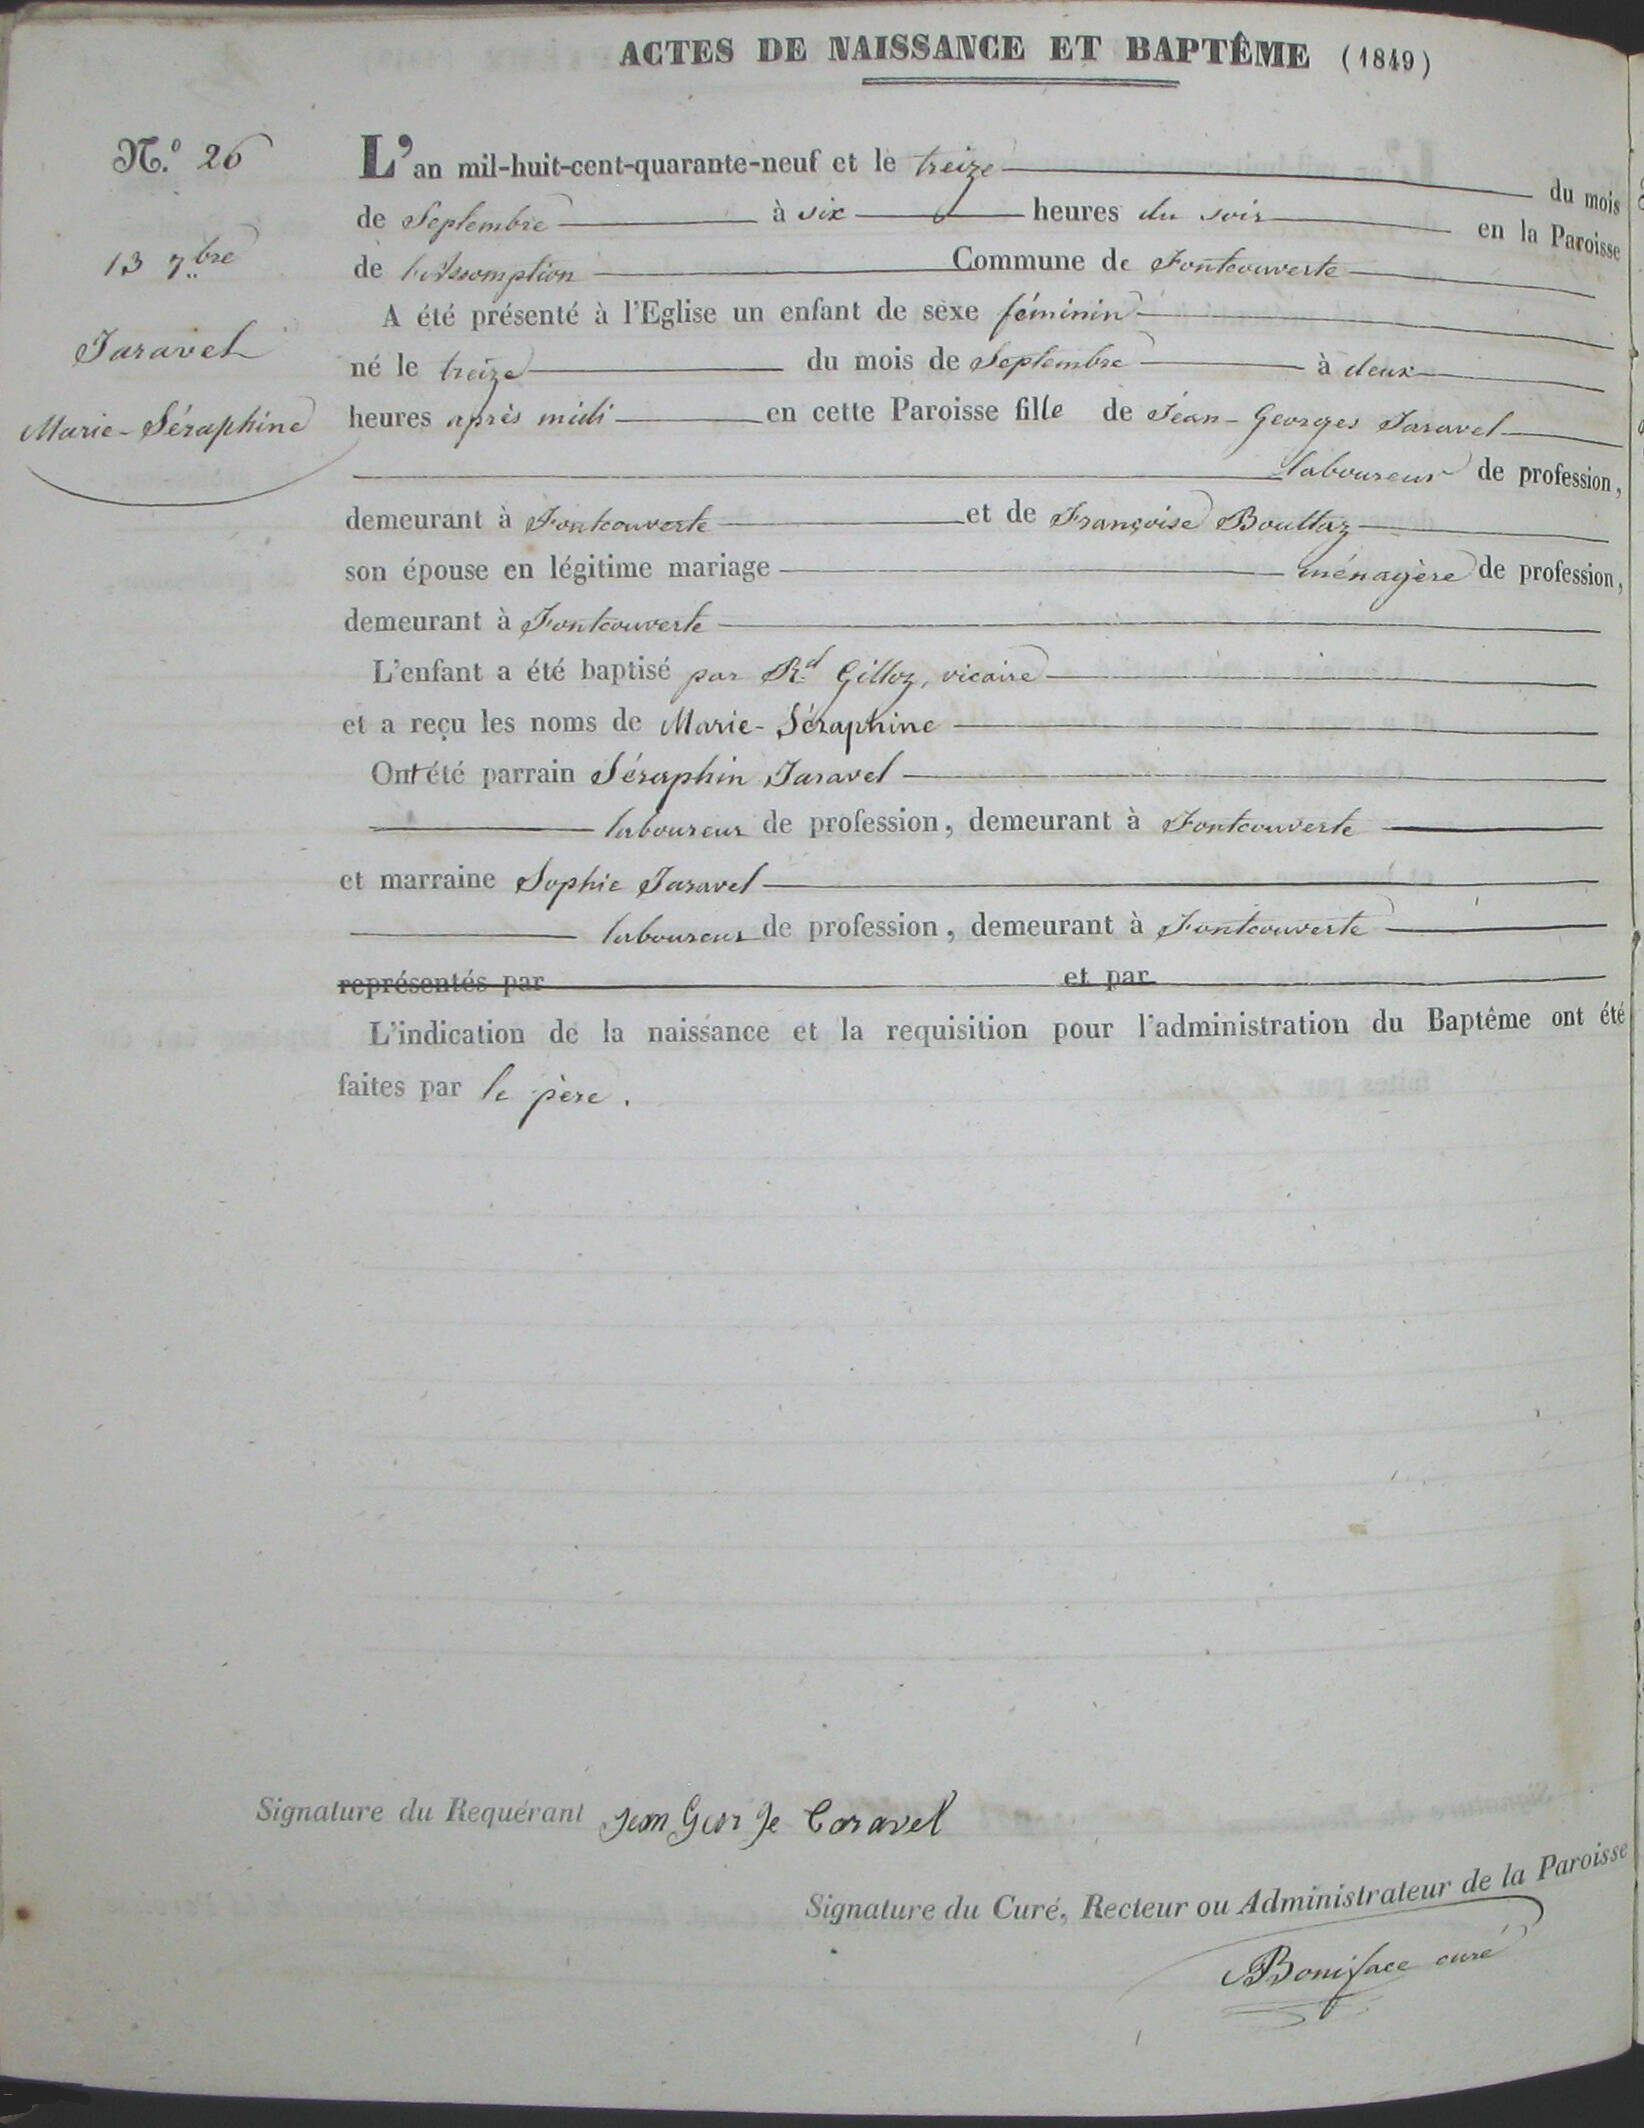 ACTES DE NAISSANCE ET BAPTÊME (1849)
N.º 26
13 7.bre
Taravel
Marie-Séraphine
L'an mil-huit-cent-quarante-neuf et le treize du mois
de Septembre à six heures du soir en la Paroisse
de l'assomption Commune de Fontcouverte
A été présenté à l'Eglise un enfant de sexe féminin
né le treize du mois de Septembre à deux
heures après midi en cette Paroisse fille de Jean-Georges Taravel
laboureur de profession,
demeurant à Fontcouverte et de Françoise Bouttaz
son épouse en légitime mariage ménagère de profession,
demeurant à Fontcouverte
L'enfant a été baptisé par Rd Gilloz, vicaire
et a reçu les noms de Marie-Séraphine
Ont été parrain Séraphin Taravel
laboureur de profession, demeurant à Fontcouverte
et marraine Sophie Taravel
laboureur de profession, demeurant à Fontcouverte
représentés par et par
L'indication de la naissance et la requisition pour l'administration du Baptême ont été
faites par le père.
Signature du Requérant Jean Gorge Taravel
Signature du Curé, Recteur ou Administrateur de la Paroisse
Boniface curé